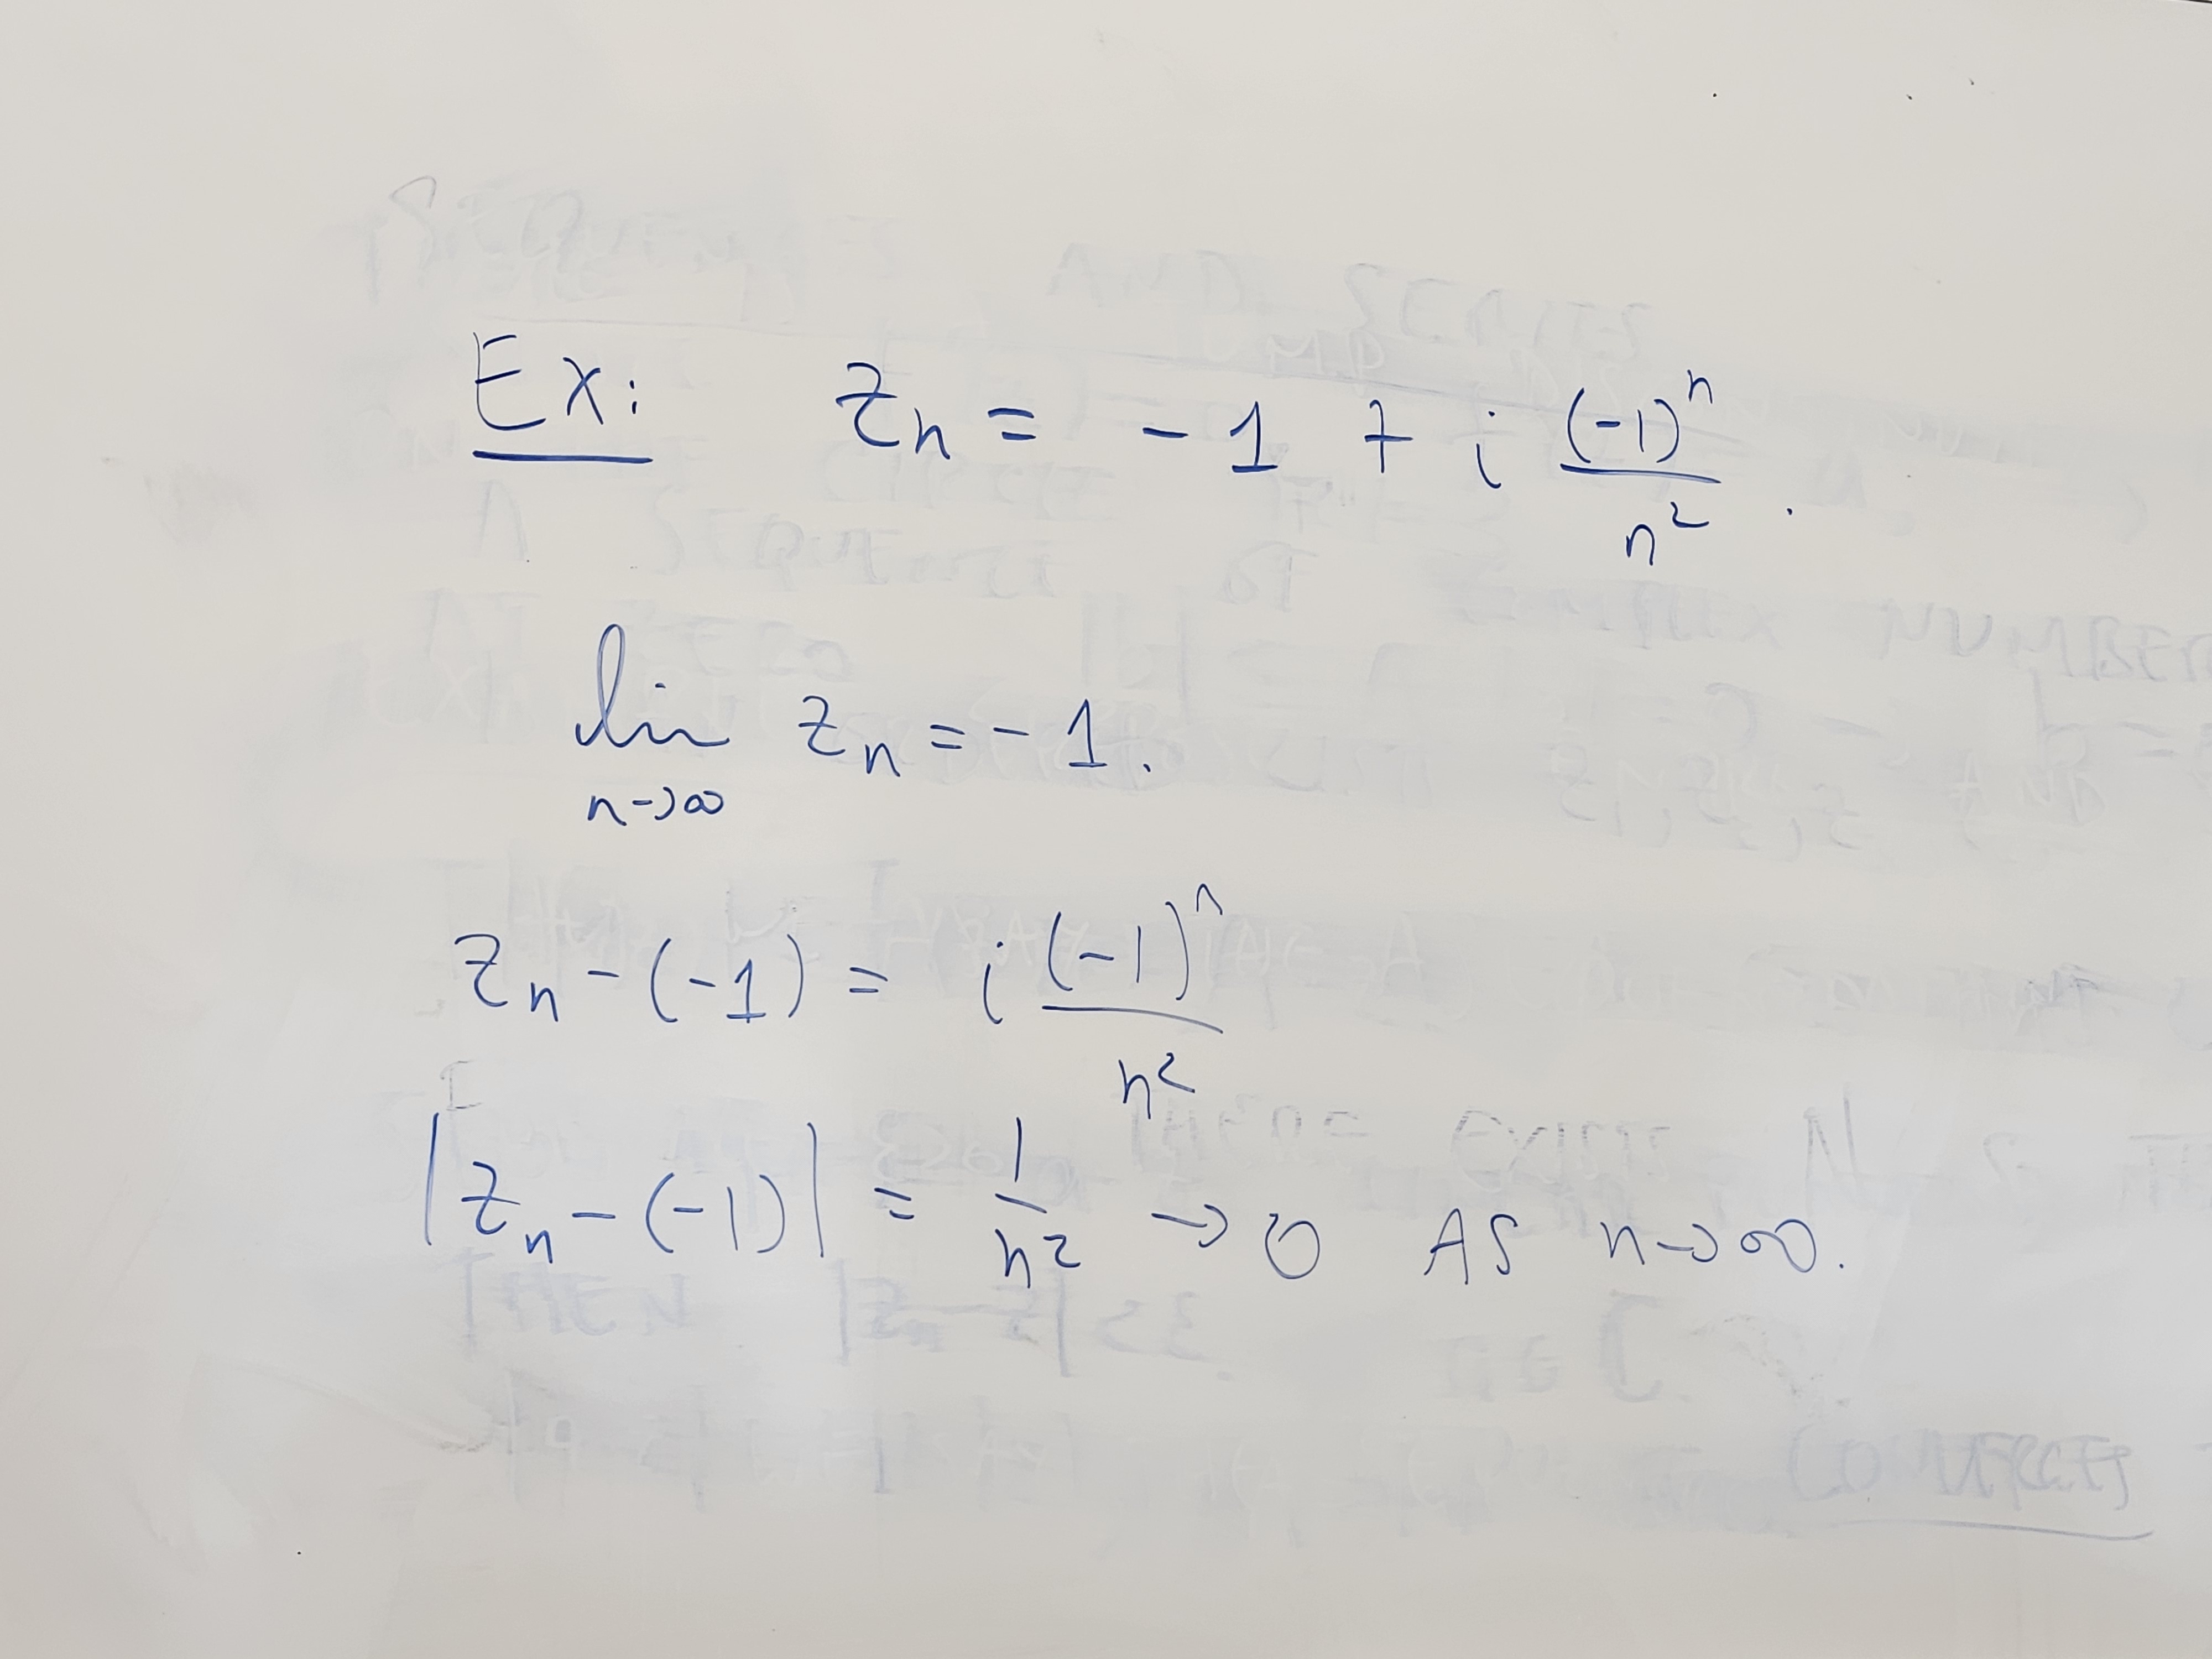 Ex: z_n = -1 + i (-1)^n / n^2 .
lim_{n→∞} z_n = -1.
z_n - (-1) = i (-1)^n / n^2
|z_n - (-1)| = 1 / n^2 → 0 AS n→∞.